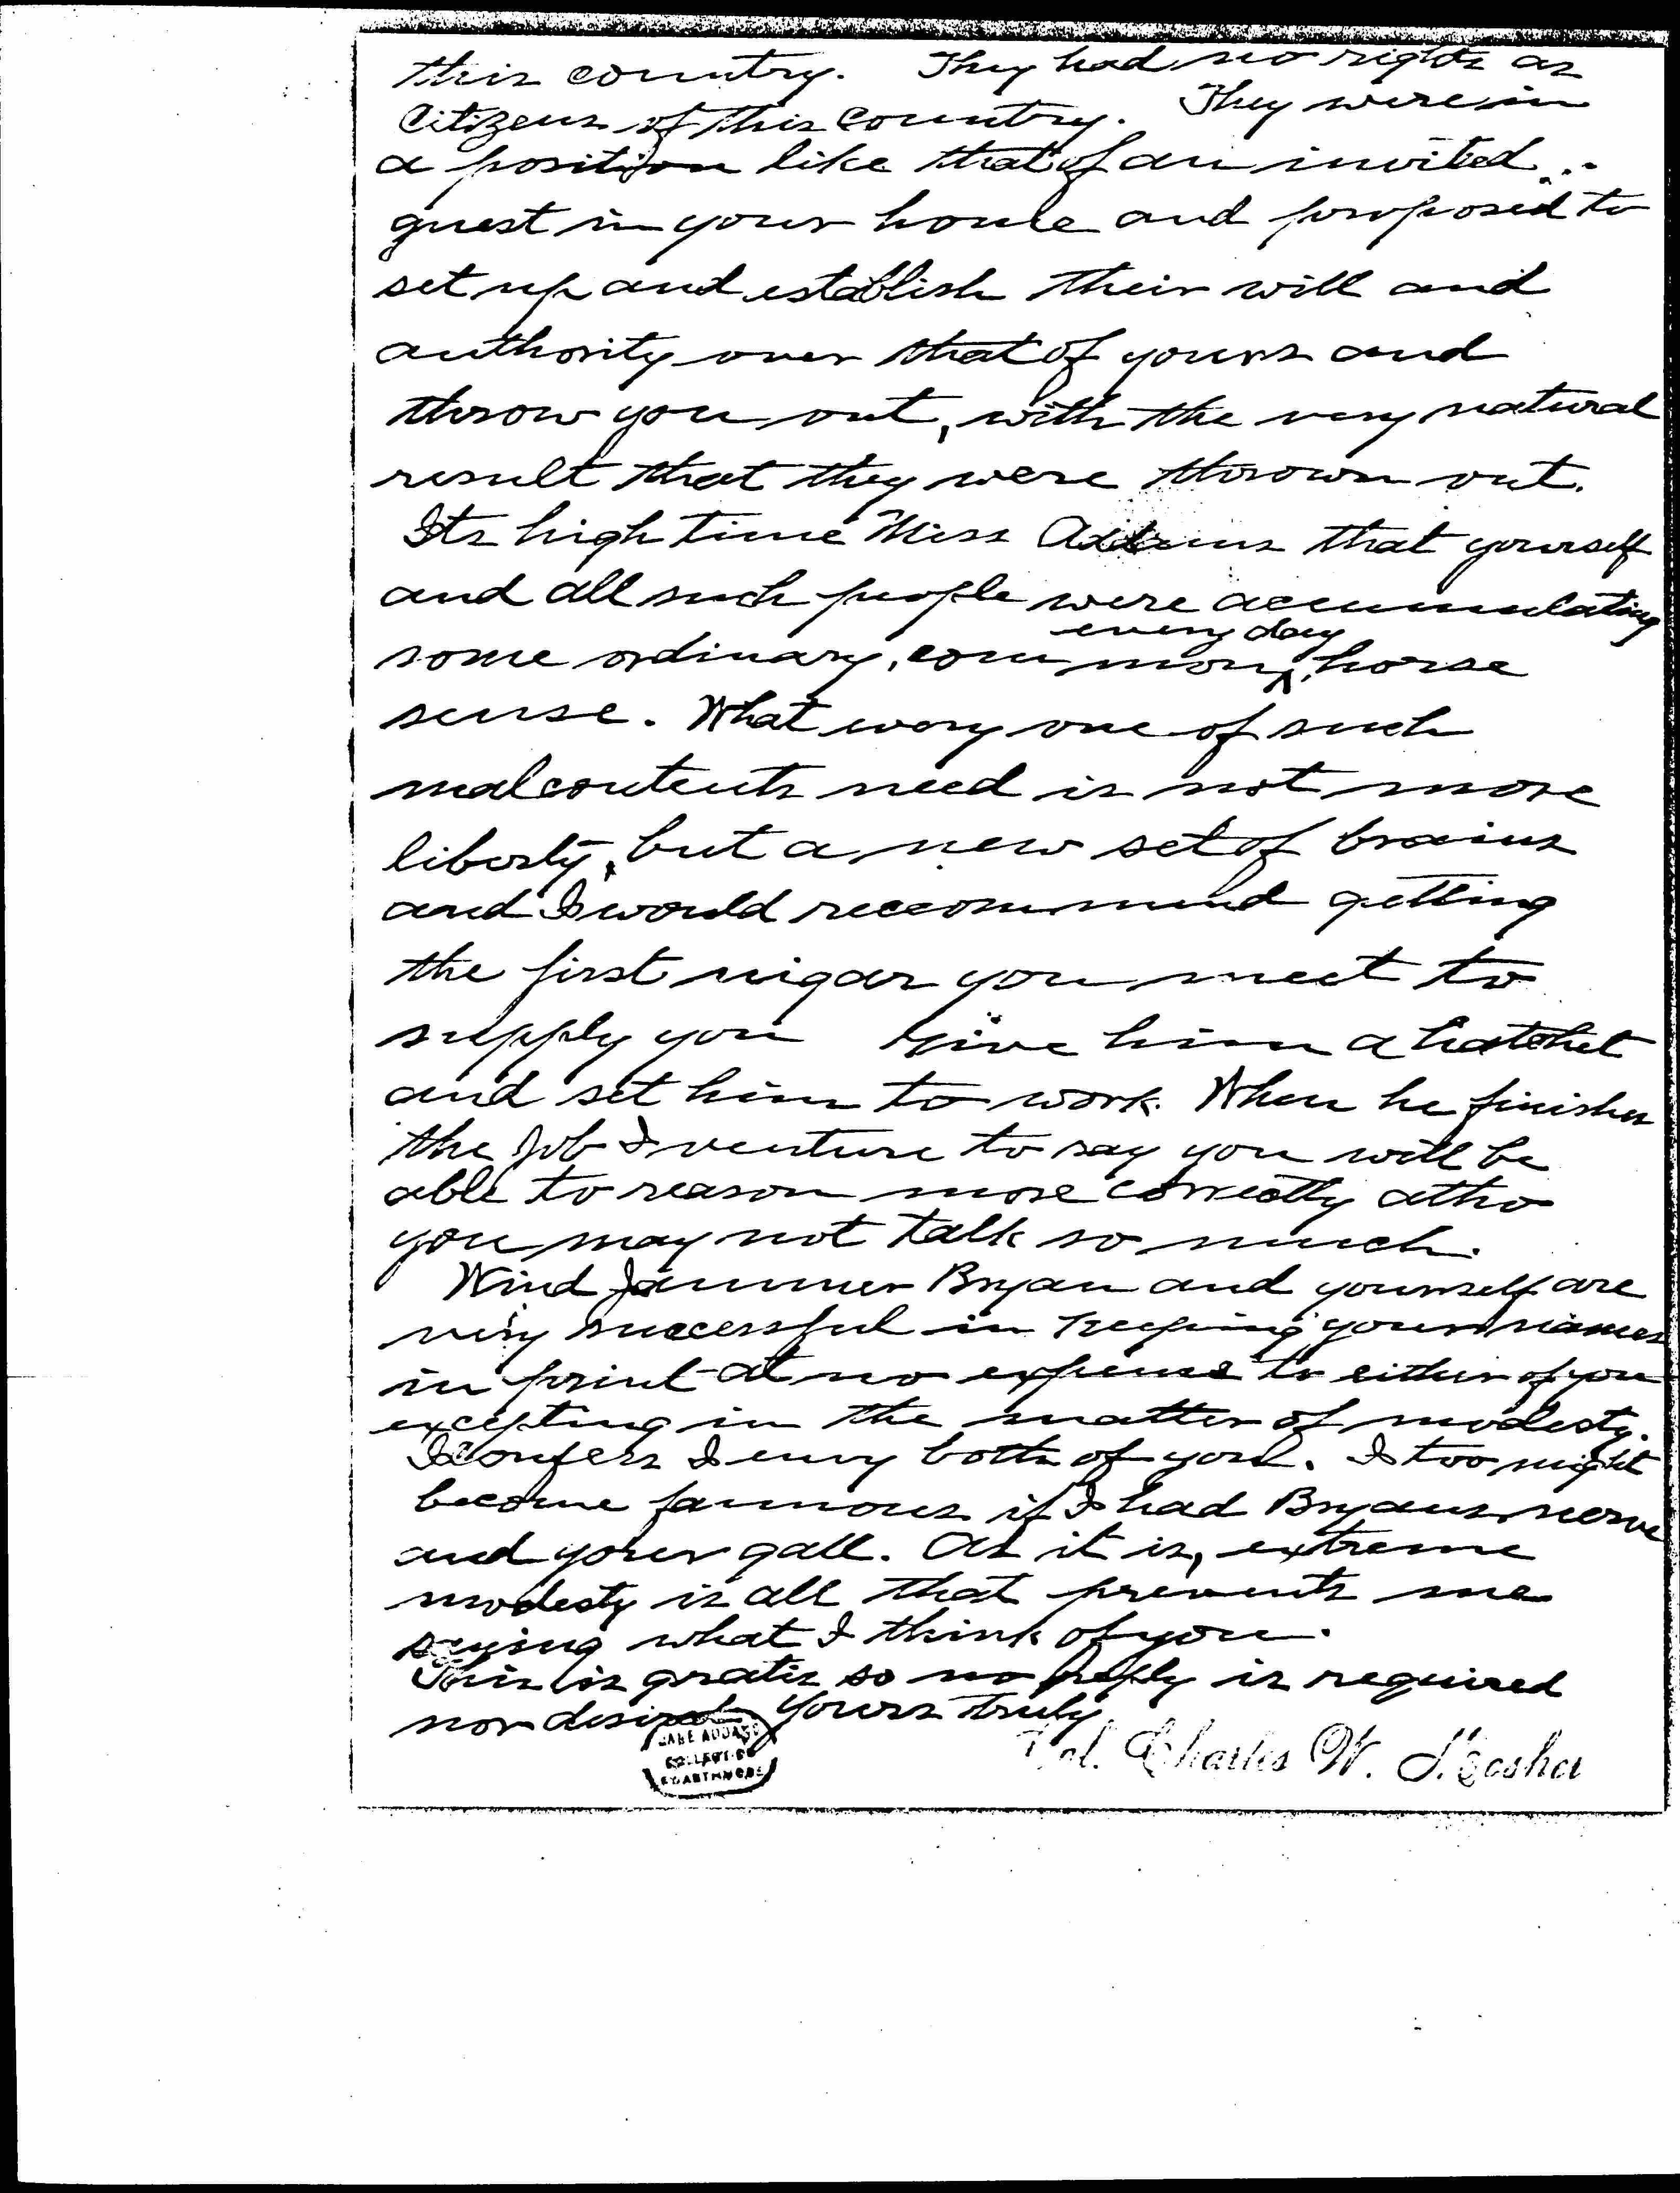 this country. They had no rights as
Citizens of this Country. They were in
a position like that of an invited
guest in your house and proposed to
set up and establish their will and
authority over that of yours and
throw you out, with the very natural
result that they were thrown out.
Its high time Miss Addams that yourself
and all such people were accumulating
every day
some ordinary, common, horse
sense. What every one of such
malcontents need is not more
liberty, but a new set of brains
and I would reccommend getting
the first nigar you meet to
supply you Give him a hatchet
and set him to work. When he finishes
the job I venture to say you will be
able to reason more correctly altho
you may not talk so much.
Wind Jammer Bryan and yourself are
very successful in keeping your names
in print at no expense to either of you
excepting in the matter of modesty.
I confess I envy both of you. I too might
become famous if I had Bryans nerve
and your gall. As it is, extreme
modesty is all that prevents me
saying what I think of you.
This is gratis so no reply is required
nor desired Yours truly
Col. Charles W.
JANE ADDAMS
COLLECTION
SWARTHMORE